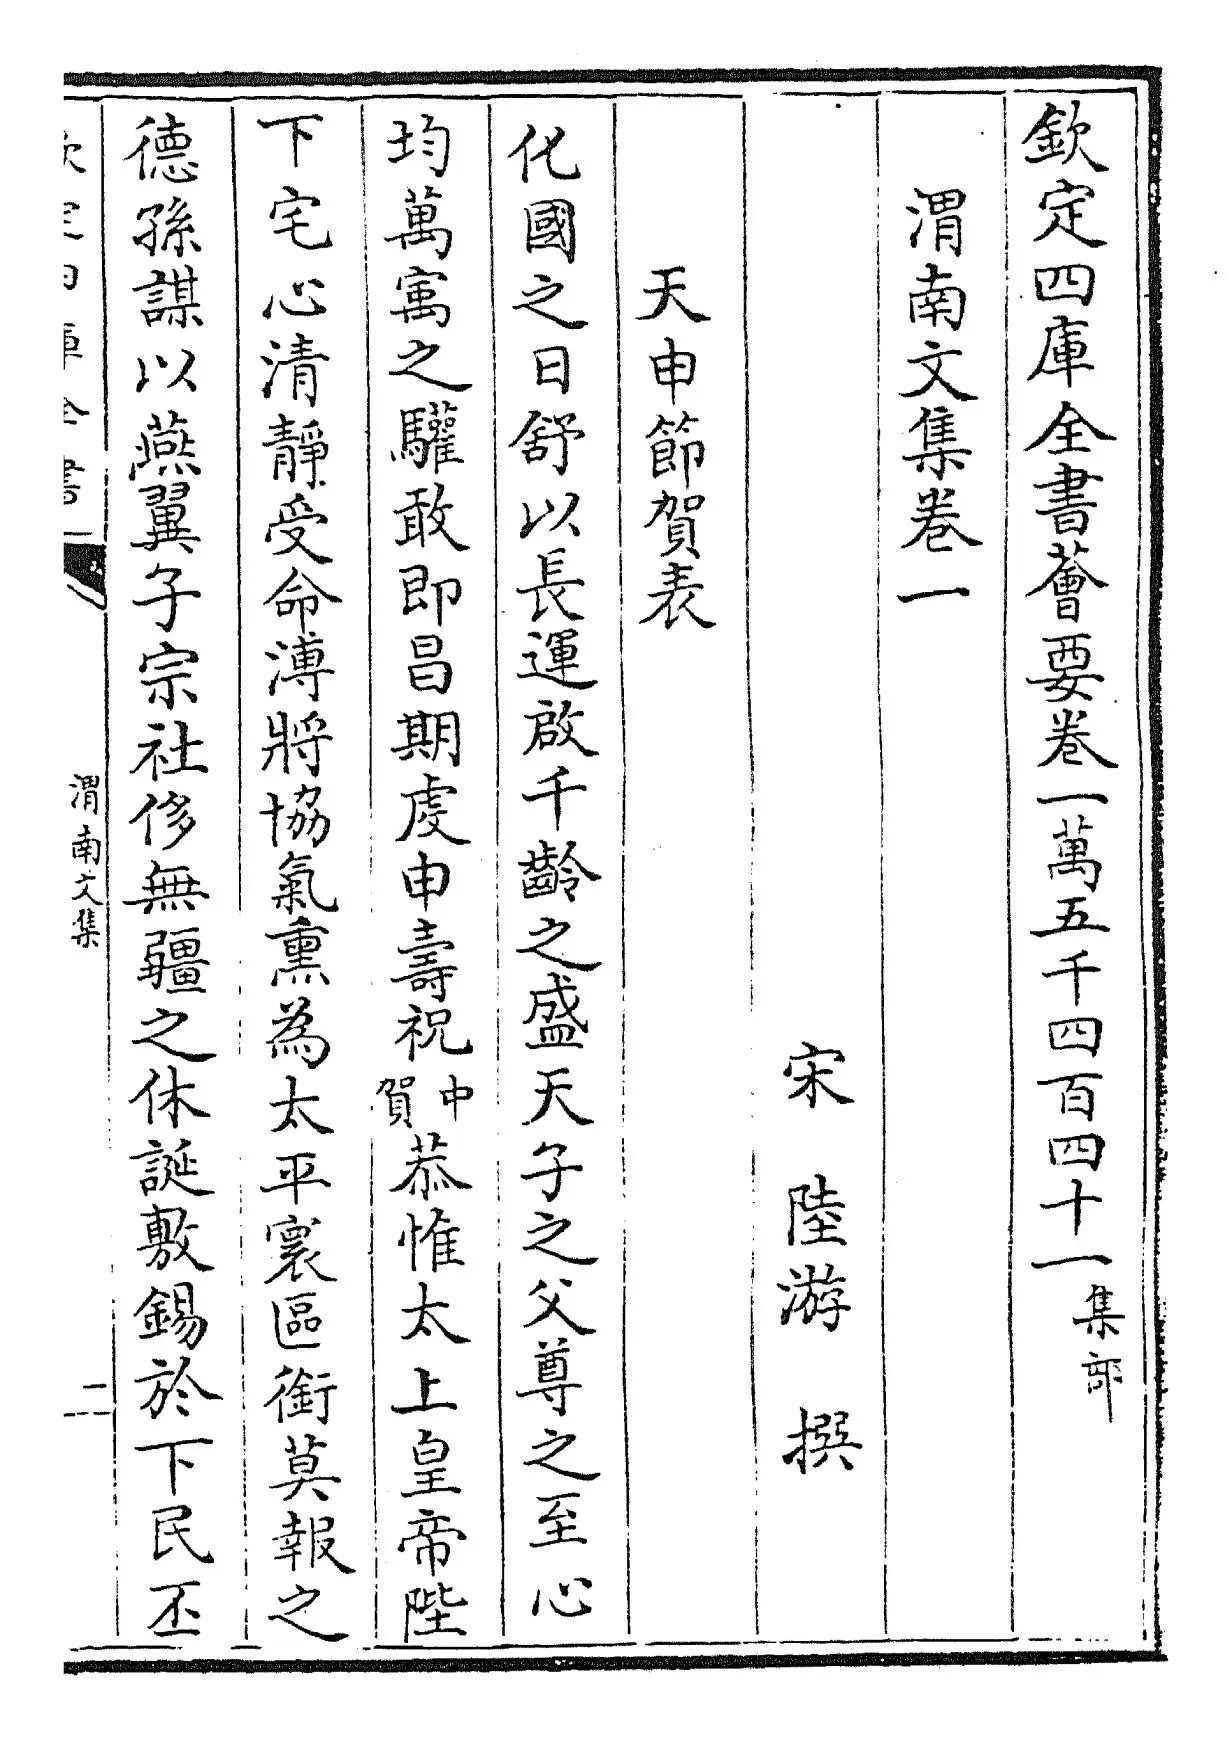 欽定四庫全書薈要卷一萬五千四百四十一集部
渭南文集卷一
宋 陸游 撰
天申節賀表
化國之日舒以長運啟千齡之盛天子之父尊之至心
均萬㝢之驩敢即昌期虔申壽祝中賀恭惟太上皇帝陛
下宅心清靜受命溥將協氣熏為太平寰區銜莫報之
德孫謀以燕翼子宗社侈無疆之休誕敷錫於下民丕
欽定四庫全書
渭南文集
二